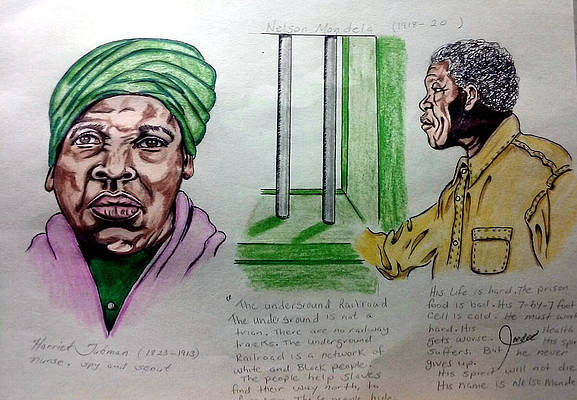 Nelson Mandela (1918-20 )
Harriet Tubman (1823-1913)
nurse, spy and scout
"The underground Railroad
The underground is not a
trian. There are no railway
tracks. The underground
Railroad is a network of
white and Black people.
The people help slaves
find their way north, to
These people hide
His life is hard. The prison
food is bad. His 7-by-7 foot
Cell is cold. He must work
hard. His Health
gets worse. His spi
Suffers. But he never
gives up.
His Spirit will not die
His name is Nelson Mande